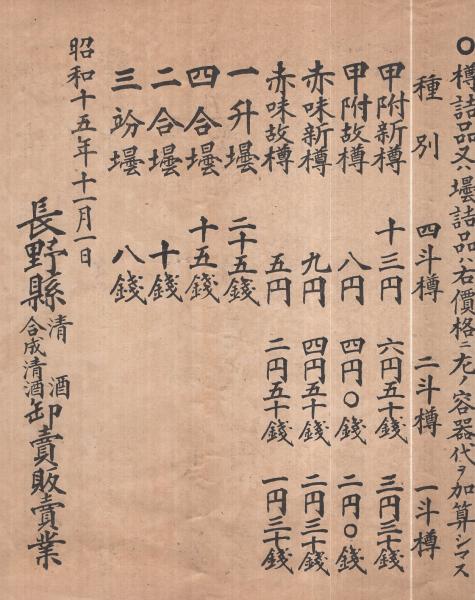 ○樽詰品又ハ壜詰品ハ右價格ニ左ノ容器代ヲ加算シマス
種別 四斗樽 二斗樽 一斗樽
甲附新樽 十三円 六円五十錢 三円三十錢
甲附故樽 八円 四円〇錢 二円〇錢
赤味新樽 九円 四円五十錢 二円三十錢
赤味故樽 五円 二円五十錢 一円三十錢
一升壜 二十五錢
四合壜 十五錢
二合壜 十錢
三竕壜 八錢
昭和十五年十一月一日
長野縣 清酒 合成清酒 卸賣販賣業